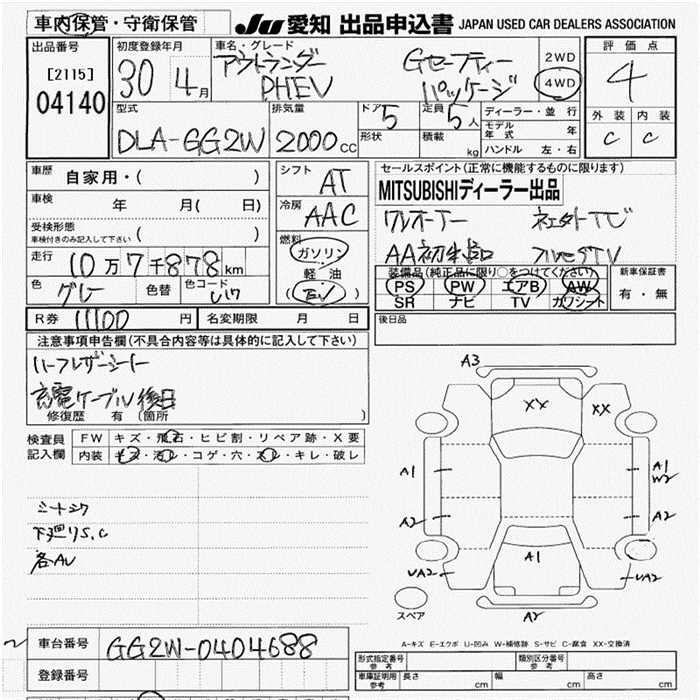 車内保管・守衛保管
JU 愛知 出品申込書 JAPAN USED CAR DEALERS ASSOCIATION
出品番号
[2115]
04140
初度登録年月
30 4月
車名・グレード
アウトランダー
PHEV
Gセーフティー
パッケージ
2WD
4WD
評価点
4
外装 内装
C C
型式
DLA-GG2W
排気量
2000cc
ドア 5
形状
定員 5人
積載 kg
ディーラー・並行
モデル年式 年
ハンドル 左・右
車歴 自家用・( )
車検 年 月( 日)
受検形態
車検付きのみ記入して下さい ( )
走行 10万7千878km
色 グレー 色替 色コード U17
R券 11100円 名変期限 月 日
シフト AT
冷房 AAC
燃料
ガソリン
軽油
(EV)
セールスポイント(正常に機能するものに限ります)
MITSUBISHIディーラー出品
ワンオーナー
AA初出品 フルセグTV
装備品(純正品に限り○をつけてください)
PS PW エアB AW
SR ナビ TV カワシート
新車保証書
有・無
後日品
注意事項申告欄(不具合内容等は具体的に記入して下さい)
ハーフレザーシート
充電ケーブル後日
修復歴 有 (箇所 )
検査員記入欄
FW キズ・飛石・ヒビ割・リペア跡・X要
内装 キズ・汚レ・コゲ・穴・スレ・キレ・破レ
シートシワ
下廻りS.C
各AU
A3
XX
XX
A1
A1
W2
A2
A2
A1
UA2
UA2
A2
スペア
A-キズ E-エクボ U-凹み W-補修跡 S-サビ C-腐食 XX-交換済
車台番号 GG2W-0404688
登録番号
形式指定番号 参考
類別区分番号 参考
車庫証明用 参考 長さ cm 幅 cm 高さ cm